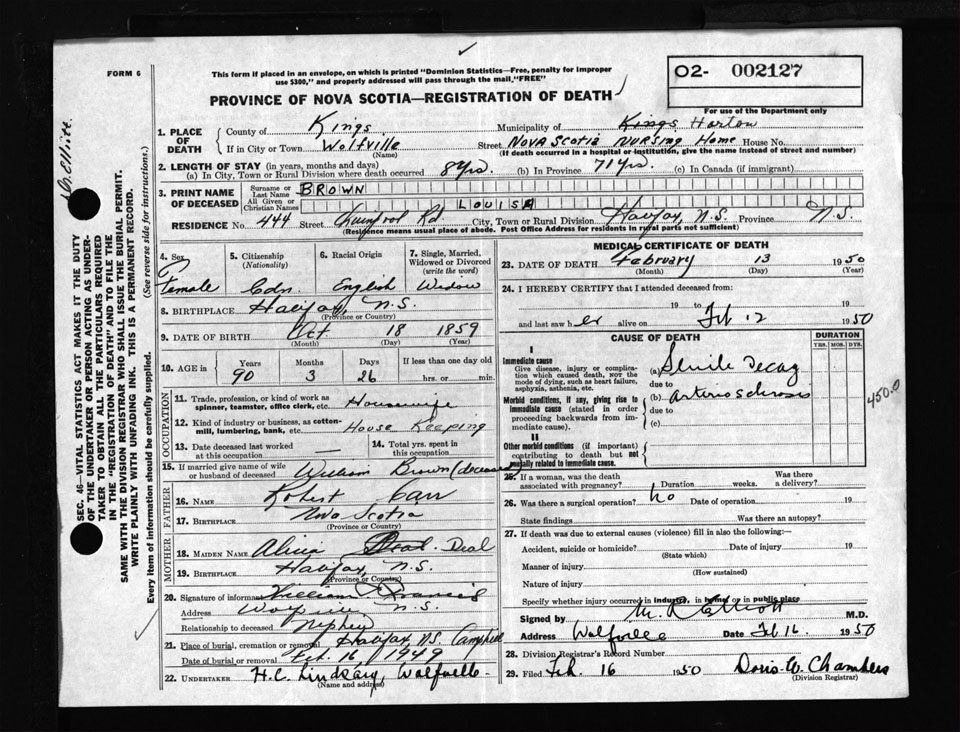 FORM 6
This form if placed in an envelope, on which is printed "Dominion Statistics—Free, penalty for improper
use $300," and properly addressed will pass through the mail, "FREE"
PROVINCE OF NOVA SCOTIA—REGISTRATION OF DEATH
O2- 002127
For use of the Department only
1. PLACE OF DEATH
County of Kings
Municipality of Kings Horton
If in City or Town Wolfville
(Name)
Street Nova Scotia Nursing Home House No.
(If death occurred in a hospital or institution, give the name instead of street and number)
2. LENGTH OF STAY (in years, months and days)
(a) In City, Town or Rural Division where death occurred 8 yrs. (b) In Province 71 yrs. (c) In Canada (if immigrant)
3. PRINT NAME OF DECEASED
Surname or Last Name BROWN
All Given or Christian Names LOUISA
RESIDENCE No. 444 Street Rd City, Town or Rural Division Halifax, N.S. Province N.S.
(Residence means usual place of abode. Post Office Address for residents in rural parts not sufficient)
4. Sex
Female
5. Citizenship
(Nationality)
Cdn.
6. Racial Origin
English
7. Single, Married,
Widowed or Divorced
(write the word)
Widow
8. BIRTHPLACE Halifax, N.S.
(Province or Country)
9. DATE OF BIRTH Oct. 18 1859
(Month) (Day) (Year)
10. AGE in
Years Months Days If less than one day old
90 3 26 hrs. or min.
OCCUPATION
11. Trade, profession, or kind of work as
spinner, teamster, office clerk, etc. Housewife
12. Kind of industry or business, as cotton-
mill, lumbering, bank, etc. House Keeping
13. Date deceased last worked
at this occupation —
14. Total yrs. spent in
this occupation
15. If married give name of wife
or husband of deceased William Brown (deceased)
FATHER
16. NAME Robert Carr
17. BIRTHPLACE Nova Scotia
(Province or Country)
MOTHER
18. MAIDEN NAME Deal
19. BIRTHPLACE Halifax, N.S.
(Province or Country)
20. Signature of informant William Francis
Address Wolfville N.S.
Relationship to deceased Nephew
21. Place of burial, cremation or removal Halifax, N.S.
Date of burial or removal Feb. 16, 1949
22. UNDERTAKER H.C. Lindsay, Wolfville
(Name and address)
MEDICAL CERTIFICATE OF DEATH
23. DATE OF DEATH February 13 1950
(Month) (Day) (Year)
24. I HEREBY CERTIFY that I attended deceased from:
19 to 19
and last saw her alive on Feb 12 1950
CAUSE OF DEATH
DURATION
YRS. MOS. DYS.
I
Immediate cause
Give disease, injury or complica-
tion which caused death, NOT the
mode of dying, such as heart failure,
asphyxia, asthenia, etc.
(a) Senile Decay
due to
Morbid conditions, if any, giving rise to
immediate cause (stated in order
proceeding backwards from im-
mediate cause).
(b) arterio sclerosis
due to
(c)
450.0
II
Other morbid conditions (if important)
contributing to death but not
causally related to immediate cause.
25. If a woman, was the death
associated with pregnancy? Duration weeks. Was there
a delivery?
26. Was there a surgical operation? no Date of operation 19
State findings Was there an autopsy?
27. If death was due to external causes (violence) fill in also the following:
Accident, suicide or homicide? Date of injury 19
(State which)
Manner of injury
(How sustained)
Nature of injury
Specify whether injury occurred in industry, in home or in public place
Signed by M. R. Elliott M.D.
Address Wolfville Date Feb 16. 1950
28. Division Registrar's Record Number
29. Filed Feb. 16 1950 Doris W. Chambers
(Division Registrar)
SEC. 46—VITAL STATISTICS ACT MAKES IT THE DUTY
OF THE UNDERTAKER OR PERSON ACTING AS UNDER-
TAKER TO OBTAIN ALL THE PARTICULARS REQUIRED
IN THE "REGISTRATION OF DEATH" AND TO FILE THE
SAME WITH THE DIVISION REGISTRAR WHO SHALL ISSUE THE BURIAL PERMIT.
WRITE PLAINLY WITH UNFADING INK. THIS IS A PERMANENT RECORD.
Every item of information should be carefully supplied. (See reverse side for instructions.)